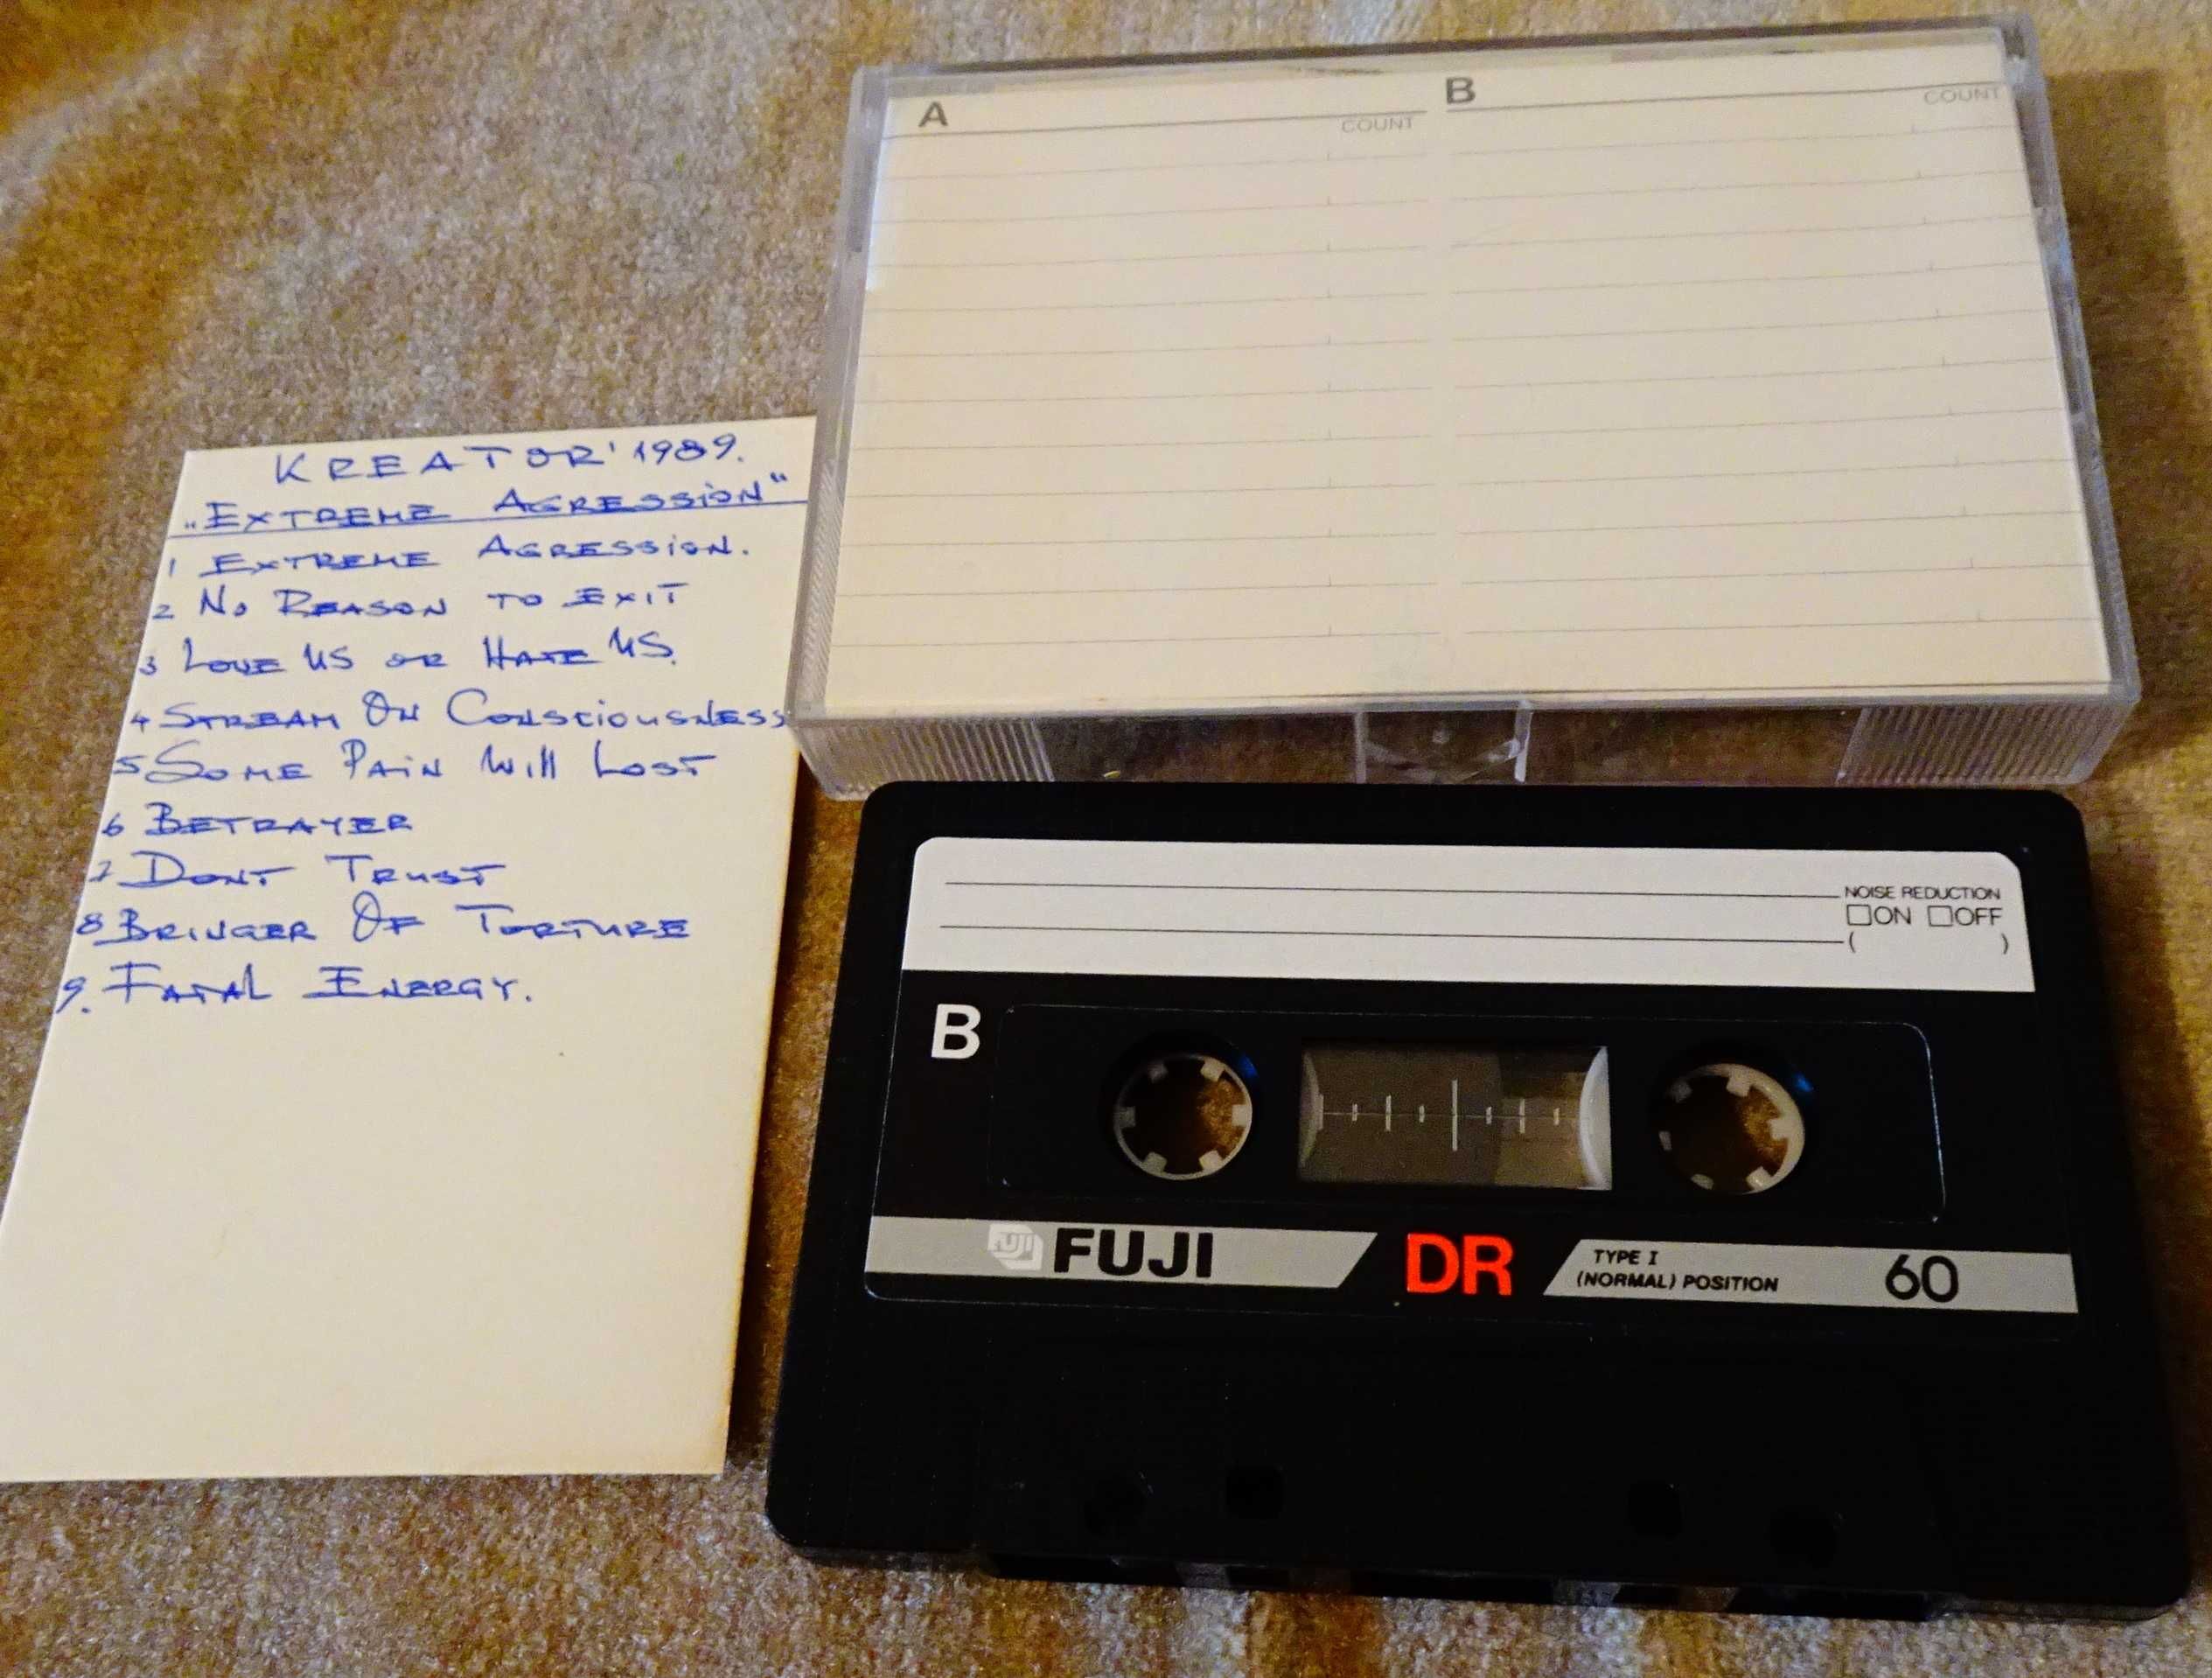 KREATOR' 1989.
„EXTREME AGRESSION"
1 EXTREME AGRESSION.
2 NO REASON TO EXIT
3 LOVE US OR HATE US.
4 STREAM ON CONSCIOUSNESS
5 SOME PAIN WILL LOST
6 BETRAYER
7 DONT TRUST
8 BRINGER OF TORTURE
9. FATAL ENERGY.
A
COUNT
B
COUNT
NOISE REDUCTION
☐ON ☐OFF
( )
B
FUJI FUJI DR TYPE I
(NORMAL) POSITION 60